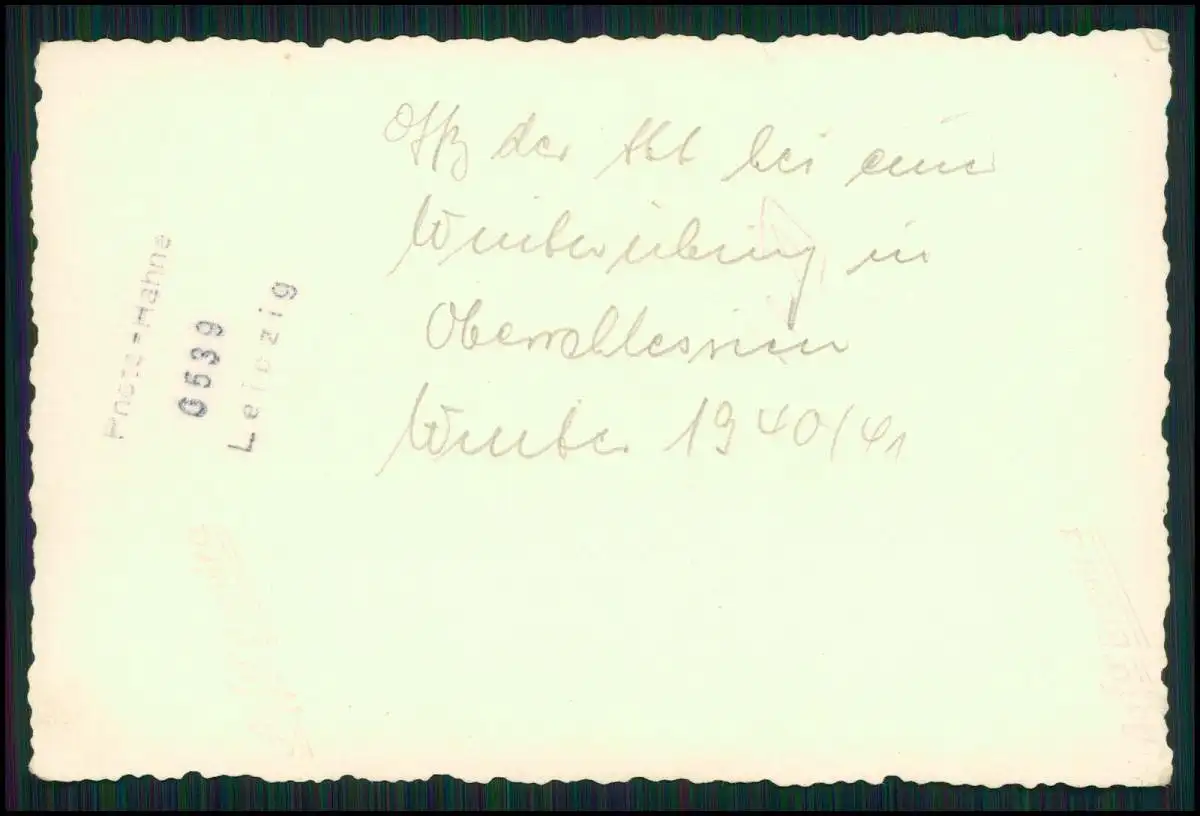 Offz der Abt bei einer
Winterübung in
Oberschlesien
Winter 1940/41
Photo-Hahne
0539
Leipzig